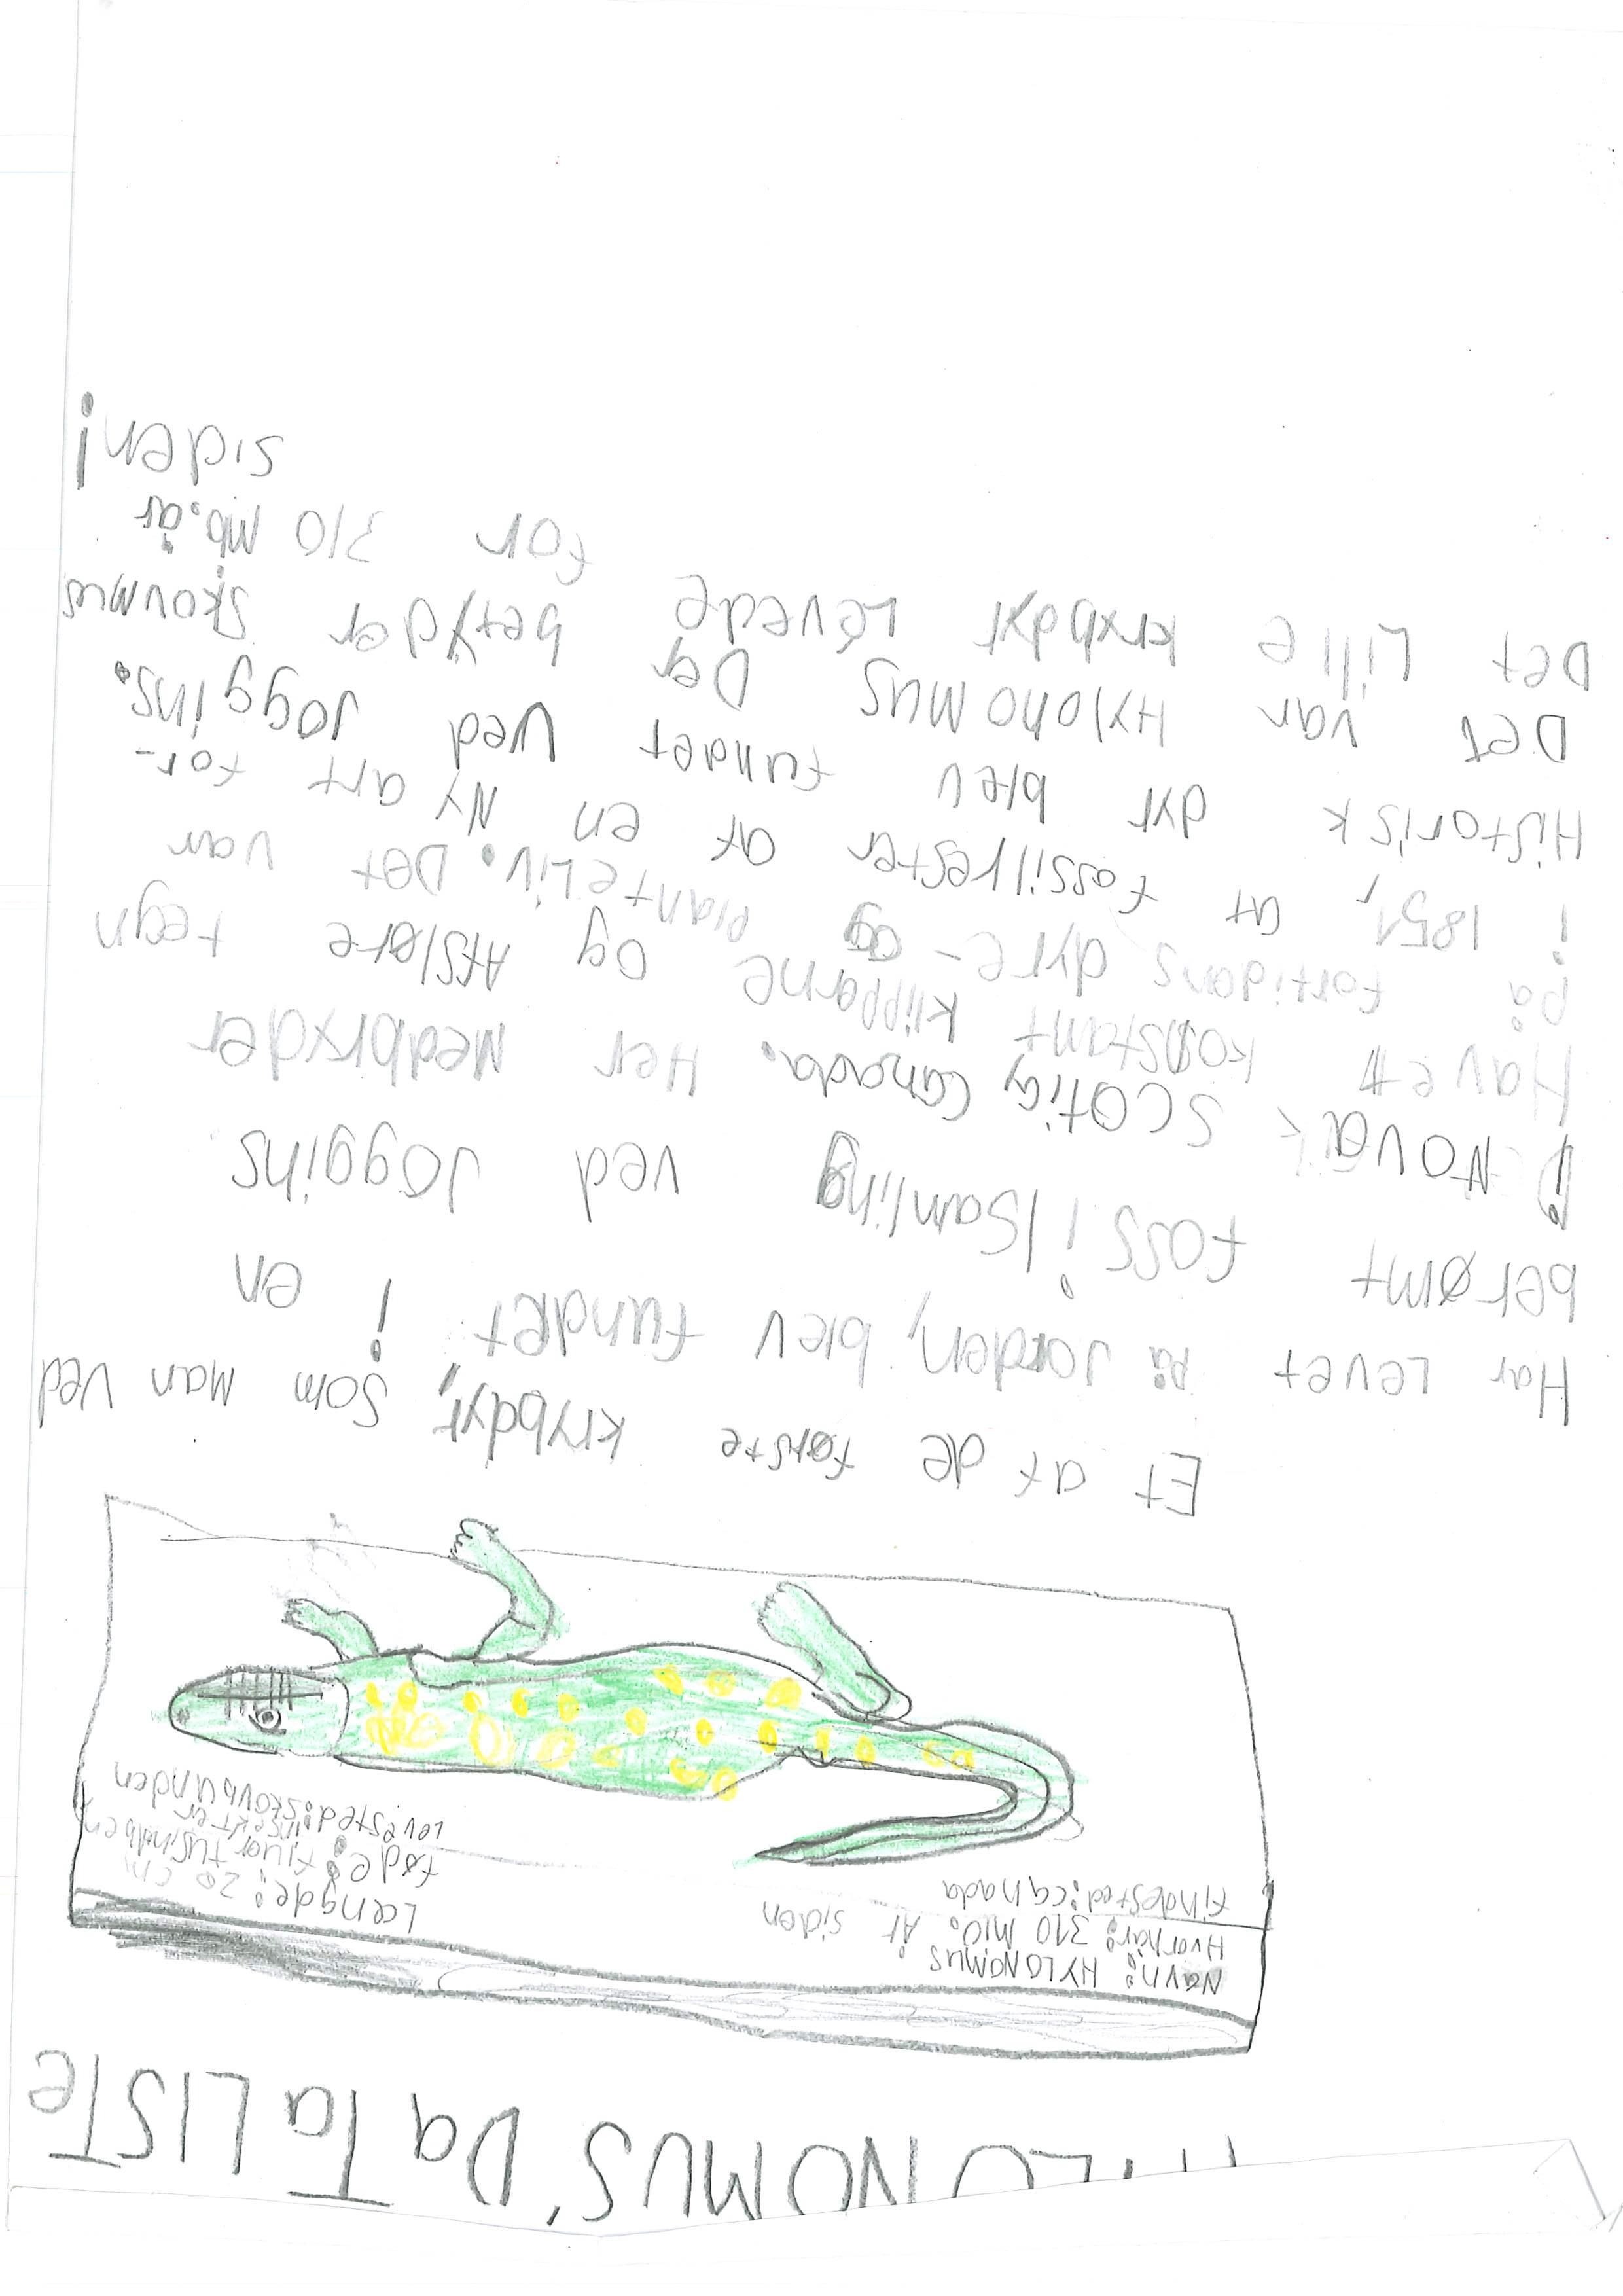 HYLONOMUS' DaTaLISTe
Navn: HYLONOMUS
Hvornår: 310 MIO. År siden
Findested: canada
Længde: 20 cm
føde: tusindben
insekter
levested: skovbunden
Et af de første krybdyr, som man ved
Har Levet på Jorden, blev fundet i en
berømt fossilsamling ved Joggins
NOVA SCOTIA, Canada. Her Nedbryder
Havet konstant klipperne og Afsløre tegn
på fortidens dyre- og planteliv. Det var
i 1851, at fossilrester af en Ny art for-
Historisk dyr blev fundet ved Joggins.
Det var Hylonomus Der betyder skovmus
Det Lille krybdyr Levede for 310 Mio. år
siden!